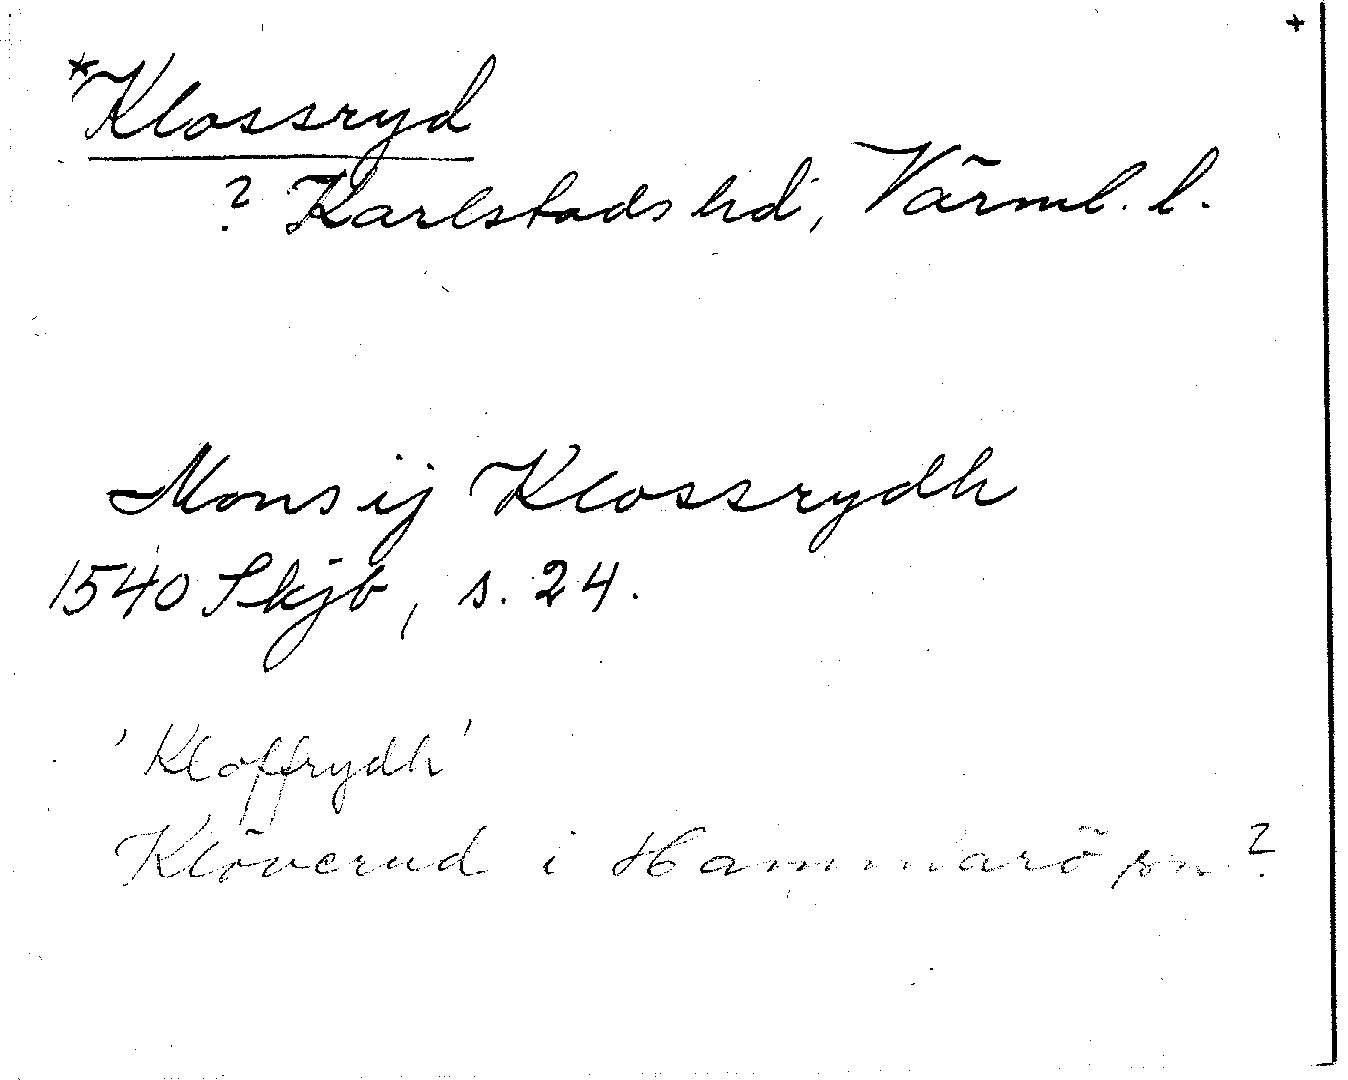 +
*Klossryd
? Karlstads hd, Värml. l.
Mons ij Klossrydh
1540 Skjb, s. 24.
'Kloffrydh'
Klöverud i Hammarö sn?